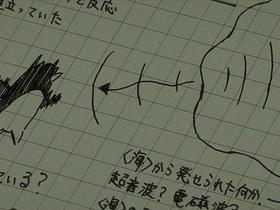 反応
立っていた
〈海〉から発せられた何か
超音波？電磁波？
ている？
〈海〉の